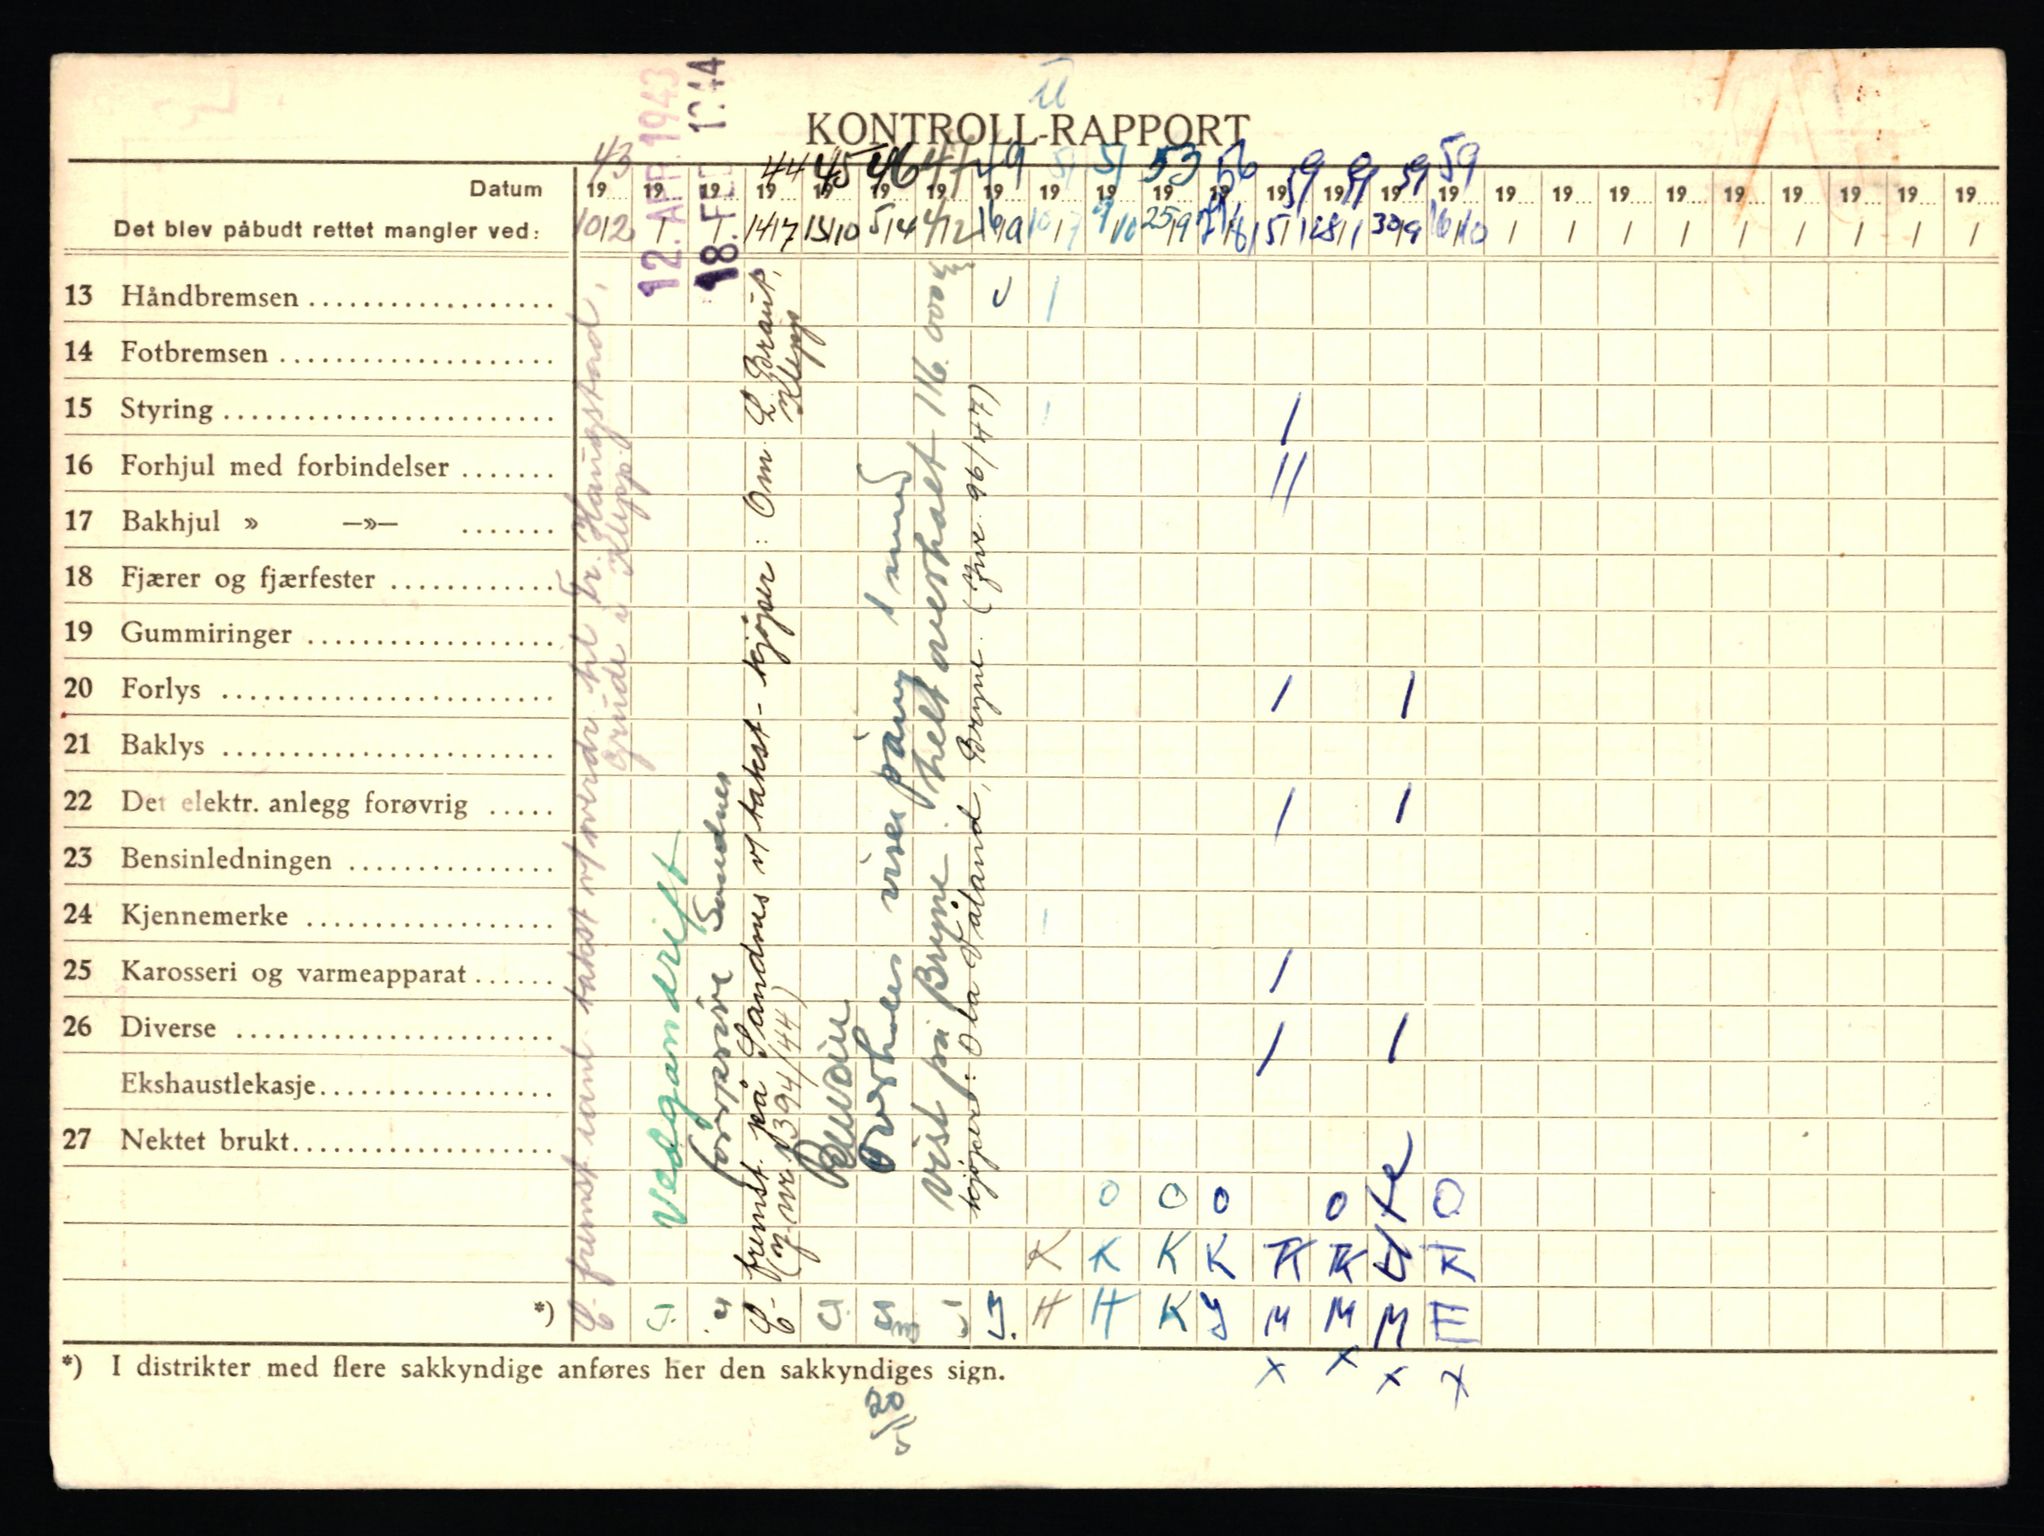 KONTROLL-RAPPORT
Datum 19 43 19 19 19 44 19 45 19 46 19 47 19 49 19 51 19 51 19 53 19 56 19 59 19 59 19 59 19 59 19 19 19 19 19 19 19 19 19
12. APR. 1943
18. FEB 1944
Det blev påbudt rettet mangler ved: 10/2 / / 14/7 15/10 5/4 4/12 16/9 10/7 9/10 25/9 15/1 28/1 30/9 16/10 / / / / / / / / /
13 Håndbremsen
14 Fotbremsen
15 Styring
16 Forhjul med forbindelser
17 Bakhjul » —»—
18 Fjærer og fjærfester
19 Gummiringer
20 Forlys
21 Baklys
22 Det elektr. anlegg forøvrig
23 Bensinledningen
24 Kjennemerke
25 Karosseri og varmeapparat
26 Diverse
Ekshaustlekasje
27 Nektet brukt
fremst. takst v/ til Fr. Haugstad,
Grude i Klepp.
Vedgassdrift
Sandnes
fremst. på Sandnes v/ takst - kjøper: Om. L. Braut,
Klepp
(J.nr. 394/44)
Overhales vises påny 1 mnd
vist på Bryne. helt overhalt 116.000
kjøpert: Ola Fåland, Bryne. (Jnr. 96/47)
O O O O O
K K K K K
H H K M M M E
x x x x
*)
*) I distrikter med flere sakkyndige anføres her den sakkyndiges sign.
20/5